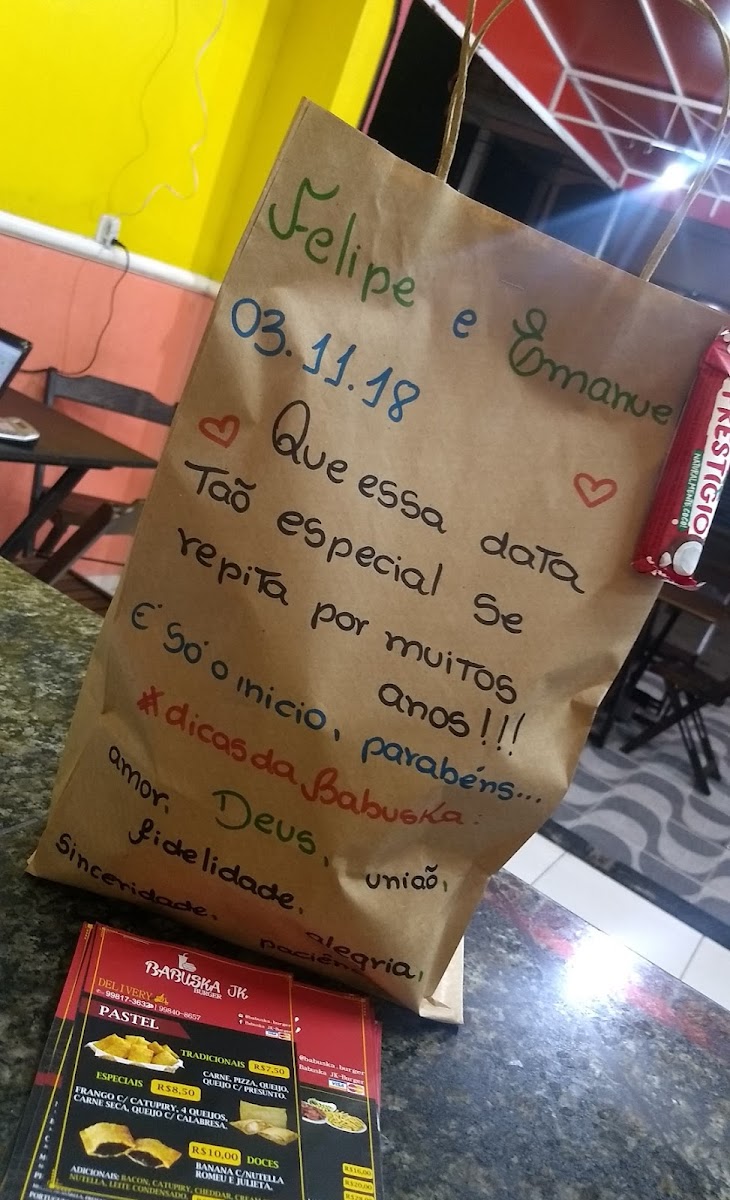 Felipe e Emanue
03.11.18
Que essa data
Taõ especial se
repita por muitos
anos!!!
É só o inicio, parabéns...
#dicasda Babuska:
amor, Deus, uniaõ,
fidelidade, alegria,
sinceridade,
PRESTIGIO
NATURALMENTE, COCO!
BABUSKA JK
BURGER
DELIVERY
99817-3633 | 99840-8657
@babuska.burger
Babuska JK-Burger
PASTEL
TRADICIONAIS R$7,50
CARNE, PIZZA, QUEIJO,
QUEIJO C/ PRESUNTO.
ESPECIAIS R$8,50
FRANGO C/ CATUPIRY, 4 QUEIJOS,
CARNE SECA, QUEIJO C/ CALABRESA.
R$10,00 DOCES
BANANA C/NUTELLA
ROMEU E JULIETA.
ADICIONAIS: BACON, CATUPIRY, CHEDDAR,
NUTELLA, LEITE CONDENSADO.
@babuska.burger
Babuska JK-Burger
VISA
R$16,00
R$20,00